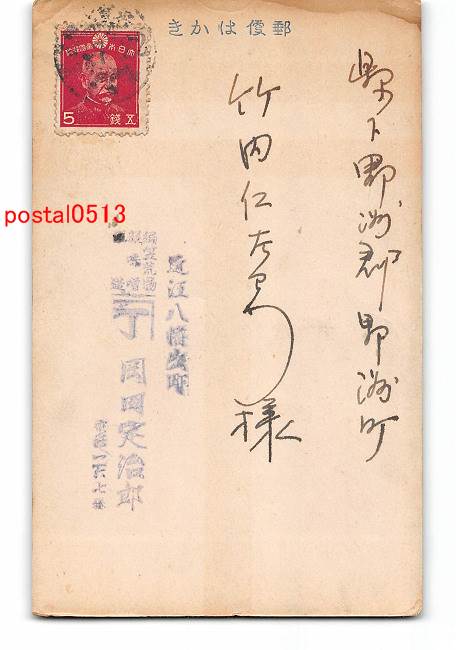 きかは便郵
大日本帝國郵便
5 錢 五
縣下野洲郡野洲町
竹内仁左衛門様
postal0513
近江八幡出町
岡田定治郎